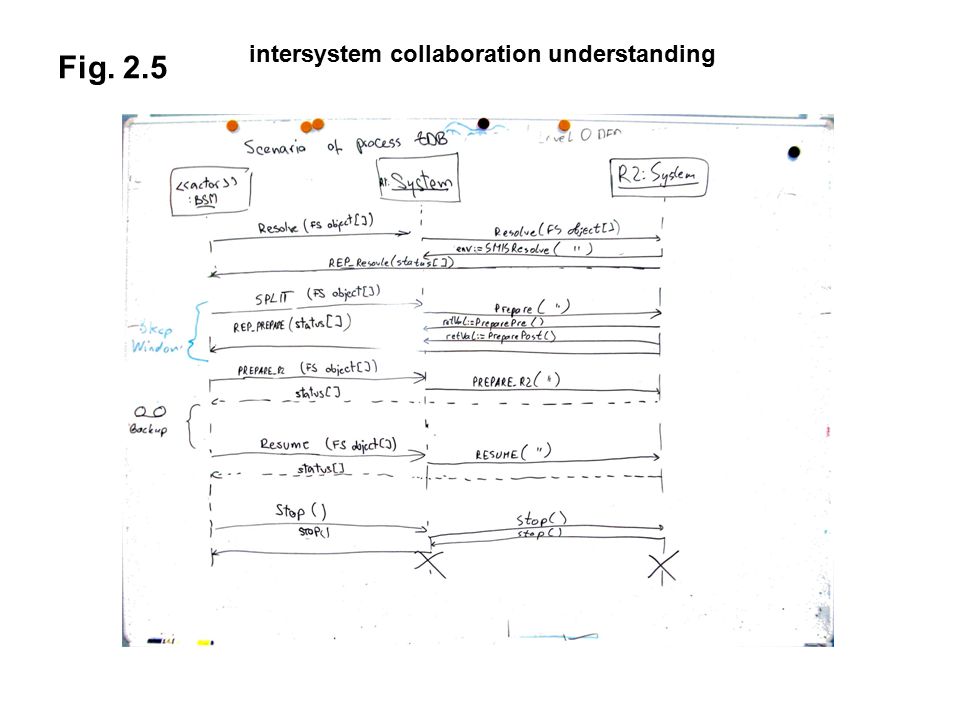 Fig. 2.5
intersystem collaboration understanding
Scenario of process
Level 0 DFD
<<actor>>
:BSM
R1:System
R2:System
Resolve (FS object[])
Resolve(FS object[])
env:=SMISResolve( " )
REP_Resovle(status[])
SPLIT (FS object[])
Prepare( " )
REP_PREPARE (status[])
retVal:=PreparePre()
retVal:=PreparePost()
Window
PREPARE_R2 (FS object[])
PREPARE_R2( " )
status[]
Backup
Resume (FS object[])
RESUME( " )
status[]
Stop()
Stop()
stop()
stop()